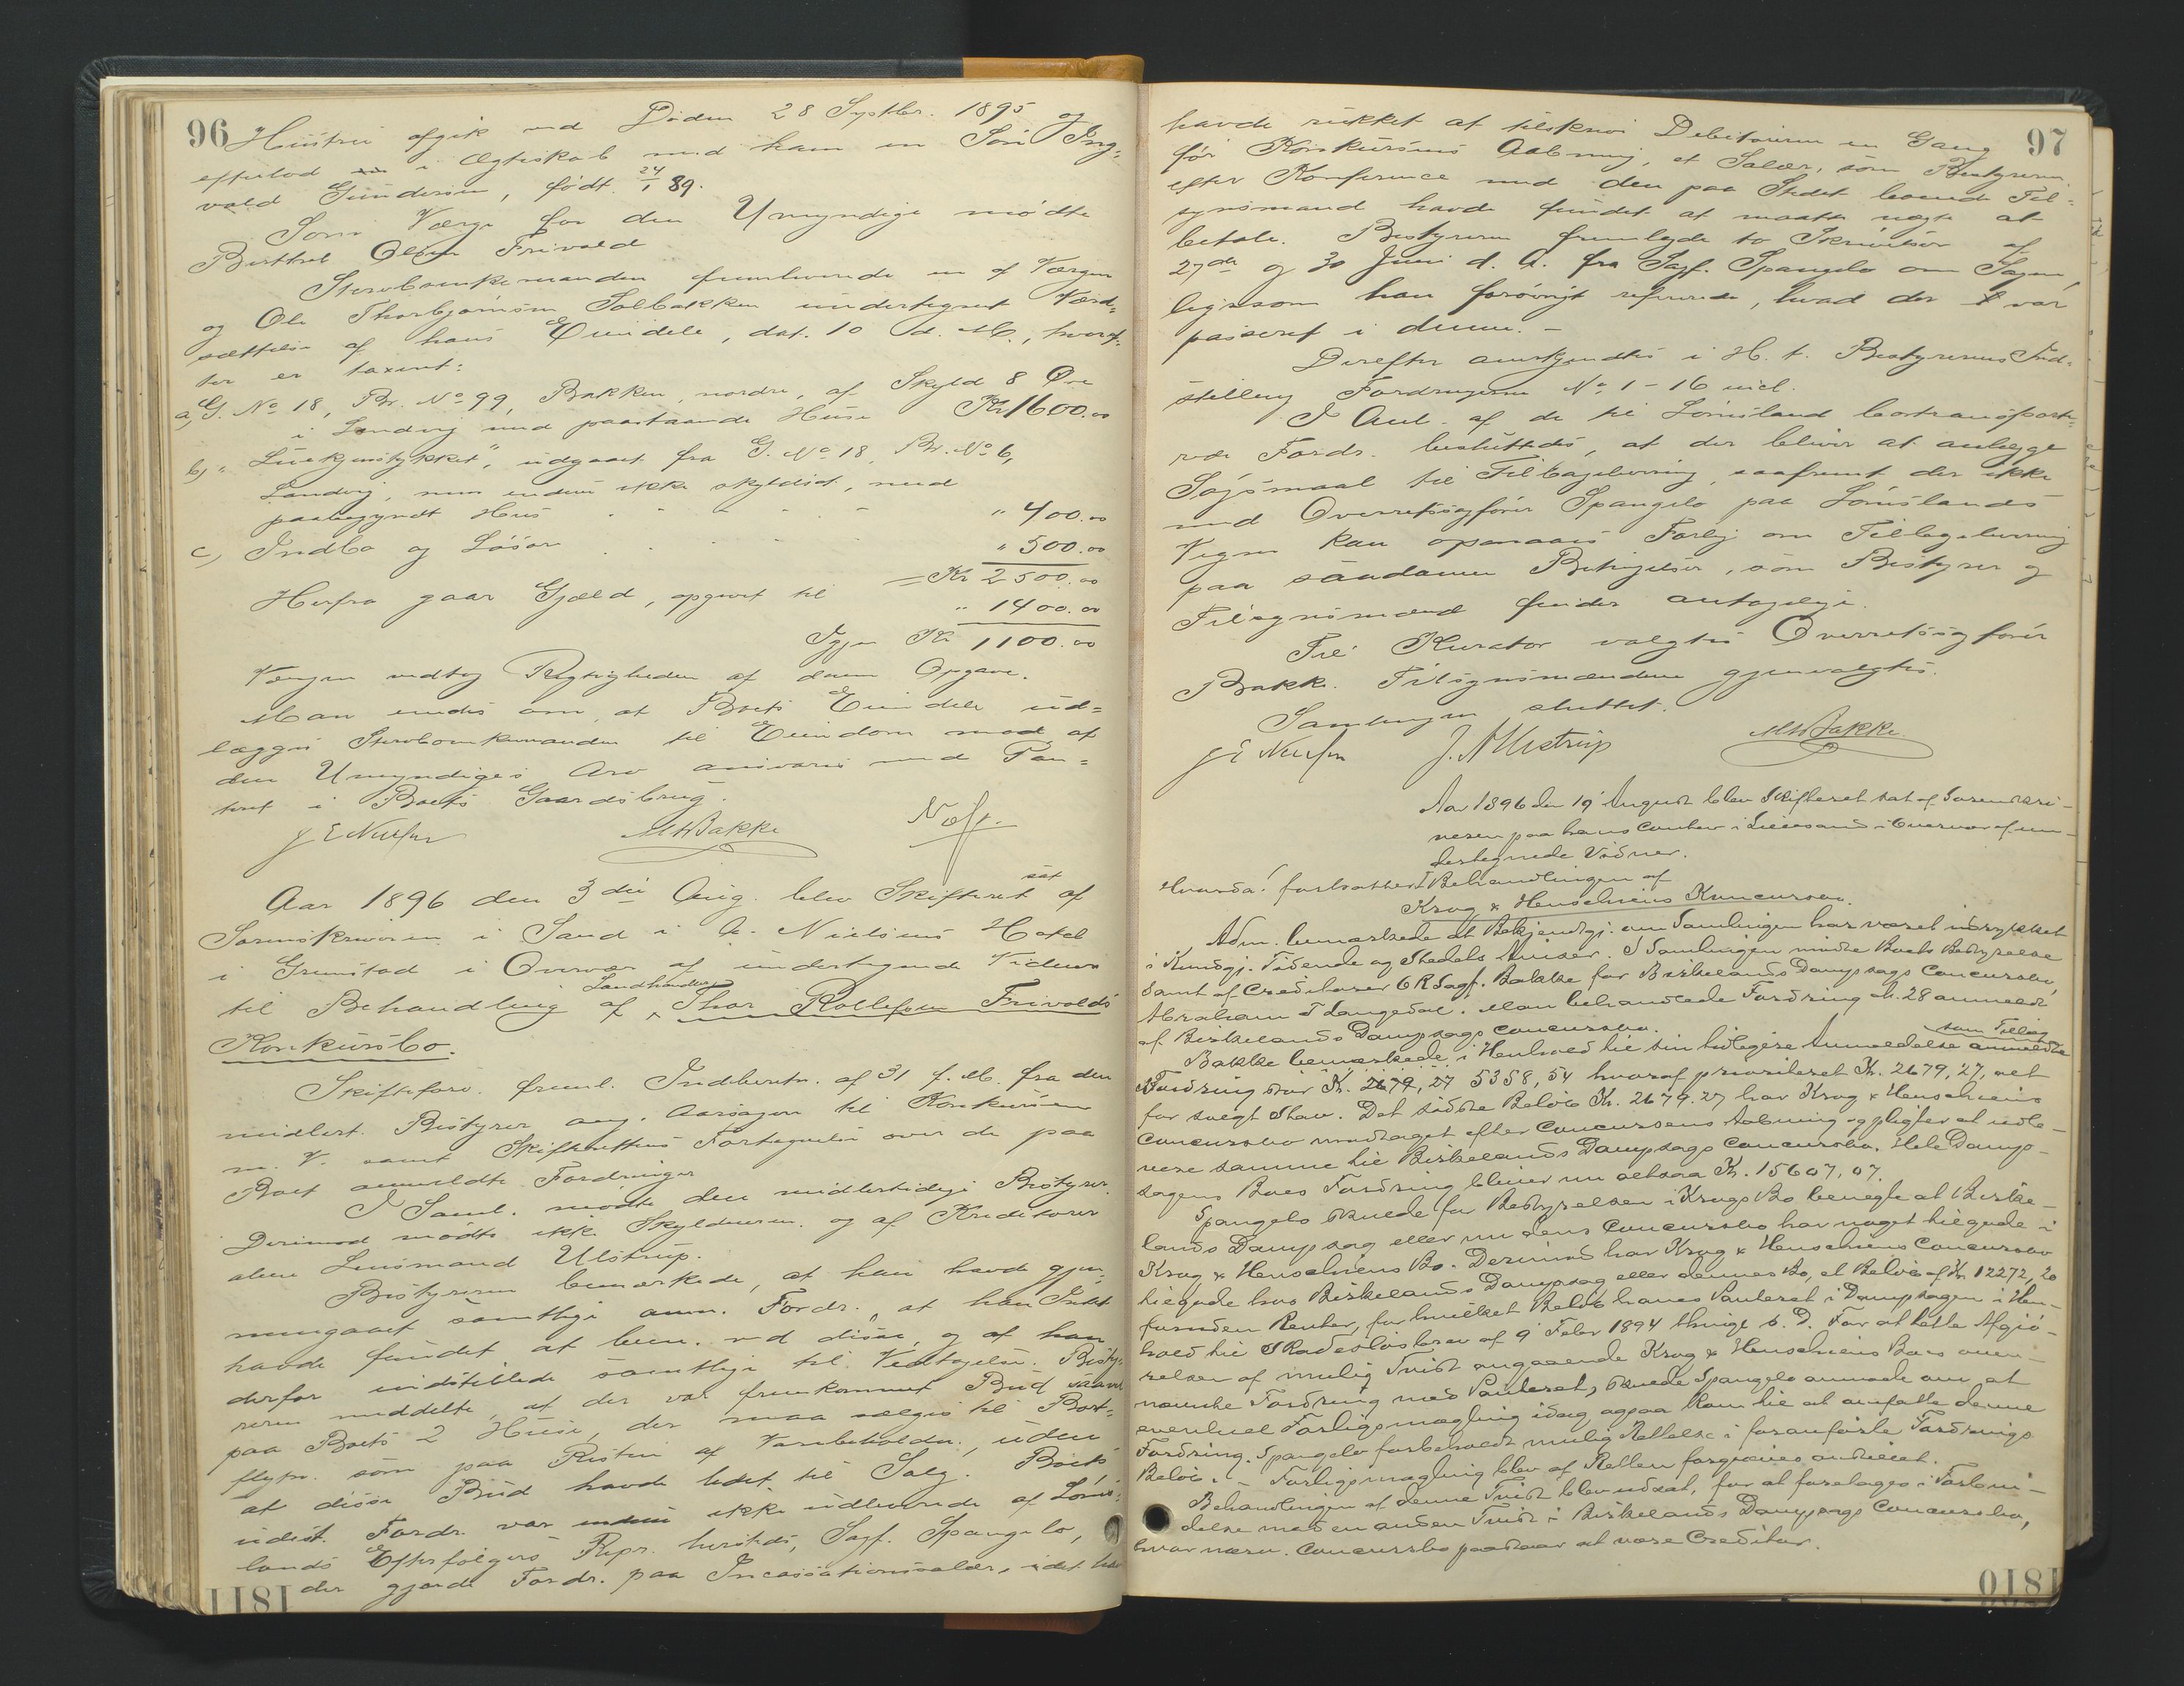 96
Hustru afgik ved Døden 28 Septbr. 1895 og
efterlod i Ægteskab med ham en Søn Ing-
vald Gundersen, født 24/1 89.
Som Værge for den Umyndige mødte
Berthel Olsen Frivold
Stervboenkemanden fremleverede en af Værgen
og Ole Thorbjørnsen Solbakken undertegnet Værd-
sættelse af hans Eiendele, dat. 10 d. M., hvoref-
ter er taxeret:
a, G. No 18, Br. No 99, Bakken, nordre, af Skyld 8 Øre
i Landvig med paastaaende Huse Kr 1600.00
b, " ", udgaaet fra G. No 18, Br. No 6,
Landvig, men endnu ikke skyldsat, med
paabegyndt Hus " 400.00
c, Indbo og Løsøre " 500.00
= Kr 2500.00
Herfra gaar Gjæld, opgivet til " 1400.00
Igjen Kr 1100.00
Værgen vedtog Rigtigheden af denne Opgave.
Man enedes om, at Boets Eiendele ud-
lægges Stervboenkemanden til Eiendom mod at
den Umyndiges Arv ansvares med Pan-
teret i Boets Gaardsbrug.
J E Nielsen M W Bakke
Aar 1896 den 3die Aug. blev Skifteret sat af
Sorenskriveren i Sand i A. Nielsens Hotel
i Grimstad i Overvær af undertegnede Vidner
til Behandling af Landhandler Thor Rollefsen Frivolds
Konkursbo.
Skifteforv. freml. Indberetn. af 31 f. M. fra den
midlert. Bestyrer ang. Aarsagen til Konkursen
m. V. samt Skifterettens Fortegnelse over de paa
Boet anmeldte Fordringer
I Saml. mødte den midlertidige Bestyrer.
Derimod mødte ikke Skyldneren og af Kreditorer
alene Lensmand Ulstrup.
Bestyreren bemærkede, at han havde gjen-
nemgaaet samtlige anm. Fordr., at han Intet
havde fundet at bem. ved disse, og at han
derfor indstillede samtlige til Vedtagelse. Besty-
reren meddelte, at der var fremkommet Bud saavel
paa Boets 2 Huse, der maa sælges til Bort-
flytn. som paa Resten af Varebeholdn., uden
at disse Bud havde ledet til Salg. Boets
udest. Fordr. var endnu ikke udleverede af Løms-
lands Efterfølgers Repr. hersteds, Sagf. Spangelo,
der gjorde Fordr. paa Incassationssalær, idet han
1811
97
havde rukket at tilskrive Debitorerne en Gang
før Konkursens Aabning, et Salær, som Bestyreren
efter Konference med den paa Stedet boende Til-
synsmand havde fundet at maatte nægte at
betale. Bestyreren fremlagde to Skrivelser af
27de og 30 Juni d. A. fra Sagf. Spangelo om Sagen,
ligesom han forøvrigt refererede, hvad der var
passeret i denne. –
Derefter anerkjendtes i H. t. Bestyrerens Ind-
stilling Fordringerne No 1 – 16 incl.
I Anl. af de til Lømsland borttransporte-
rede Fordr. besluttedes, at der bliver at anlægge
Søgsmaal til Tilbagelevering, saafremt der ikke
med Overretssagfører Spangelo paa Lømslands
Vegne kan opnaaes Forlig om Tilbagelevering
paa saadanne Betingelser, som Bestyrer og
Tilsynsmænd finder antagelige.
Til Kurator valgtes Overretssagfører
Bakke. Tilsynsmændene gjenvalgtes.
Samlingen sluttet.
J E Nielsen J. A Ulstrup M W Bakke
Aar 1896 den 19 August blev Skifteret sat af Sorenskri-
veren paa hans Contor i Lillesand i Overvær af un-
dertegnede Vidner.
Hvorda! fortsattes Behandlingen af
Krog & Henschiens Concursbo.
Adm. bemærkede at Bekjendtgj. om Samlingen har været indrykket
i Kundgj. Tidende og Stedets Aviser. I Samlingen mødte Boets Bestyrelse
samt af Creditorer O R Sagf. Bakke for Birkelands Dampsags Concursbo,
Abraham T Langedal. Man behandlede Fordring No. 28 anmeldt
af Birkelands Dampsags Concursbo.
Bakke bemærkede i Henhold til sin tidligere Anmeldelse som Tillæg
Fordring stor Kr. 2679,27 5358,54 hvoraf prioriteret Kr. 2679,27, alt
for solgt Skur. Det sidste Beløb Kr. 2679.27 har Krog & Henschiens
Concursbo modtaget efter Concursens Aabning og pligter at udle-
vere samme til Birkelands Dampsags Concursbo. Hele Damp-
sagens Boes Fordring bliver nu altsaa Kr. 15607,07.
Spangelo skulde for Bestyrelsen i Krogs Bo benegte at Birke-
lands Dampsag eller nu dens Concursbo har noget tilgode i
Krog & Henschiens Bo. Derimod har Krog & Henschiens Concursbo
tilgode hos Birkelands Dampsag eller dennes Bo, et Beløb af Kr. 12272,20
foruden Renter, for hvilket Beløb haves Panteret i Dampsagen i Hen-
hold til Skadesløsbrev af 9 Febr 1894 thingl. s. D. For at lette Afgjø-
relsen af mulig Tvist angaaende Krog & Henschiens Boes oven-
nævnte Fordring med Panteret, skulde Spangelo anmode om at
eventuel Forligsmægling idag ogsaa kom til at omfatte denne
Fordring. Spangelo forbeholdt mulig Rettelse i foranførte Fordrings
Beløb. – Forligsmægling blev af Retten forgjæves anstillet.
Behandlingen af denne Tvist blev udsat, for at foretages i Forbin-
delse med en anden Tvist i Birkelands Dampsags Concursbo,
hvor nærv. Concursbo paastaar at være Creditor.
1810